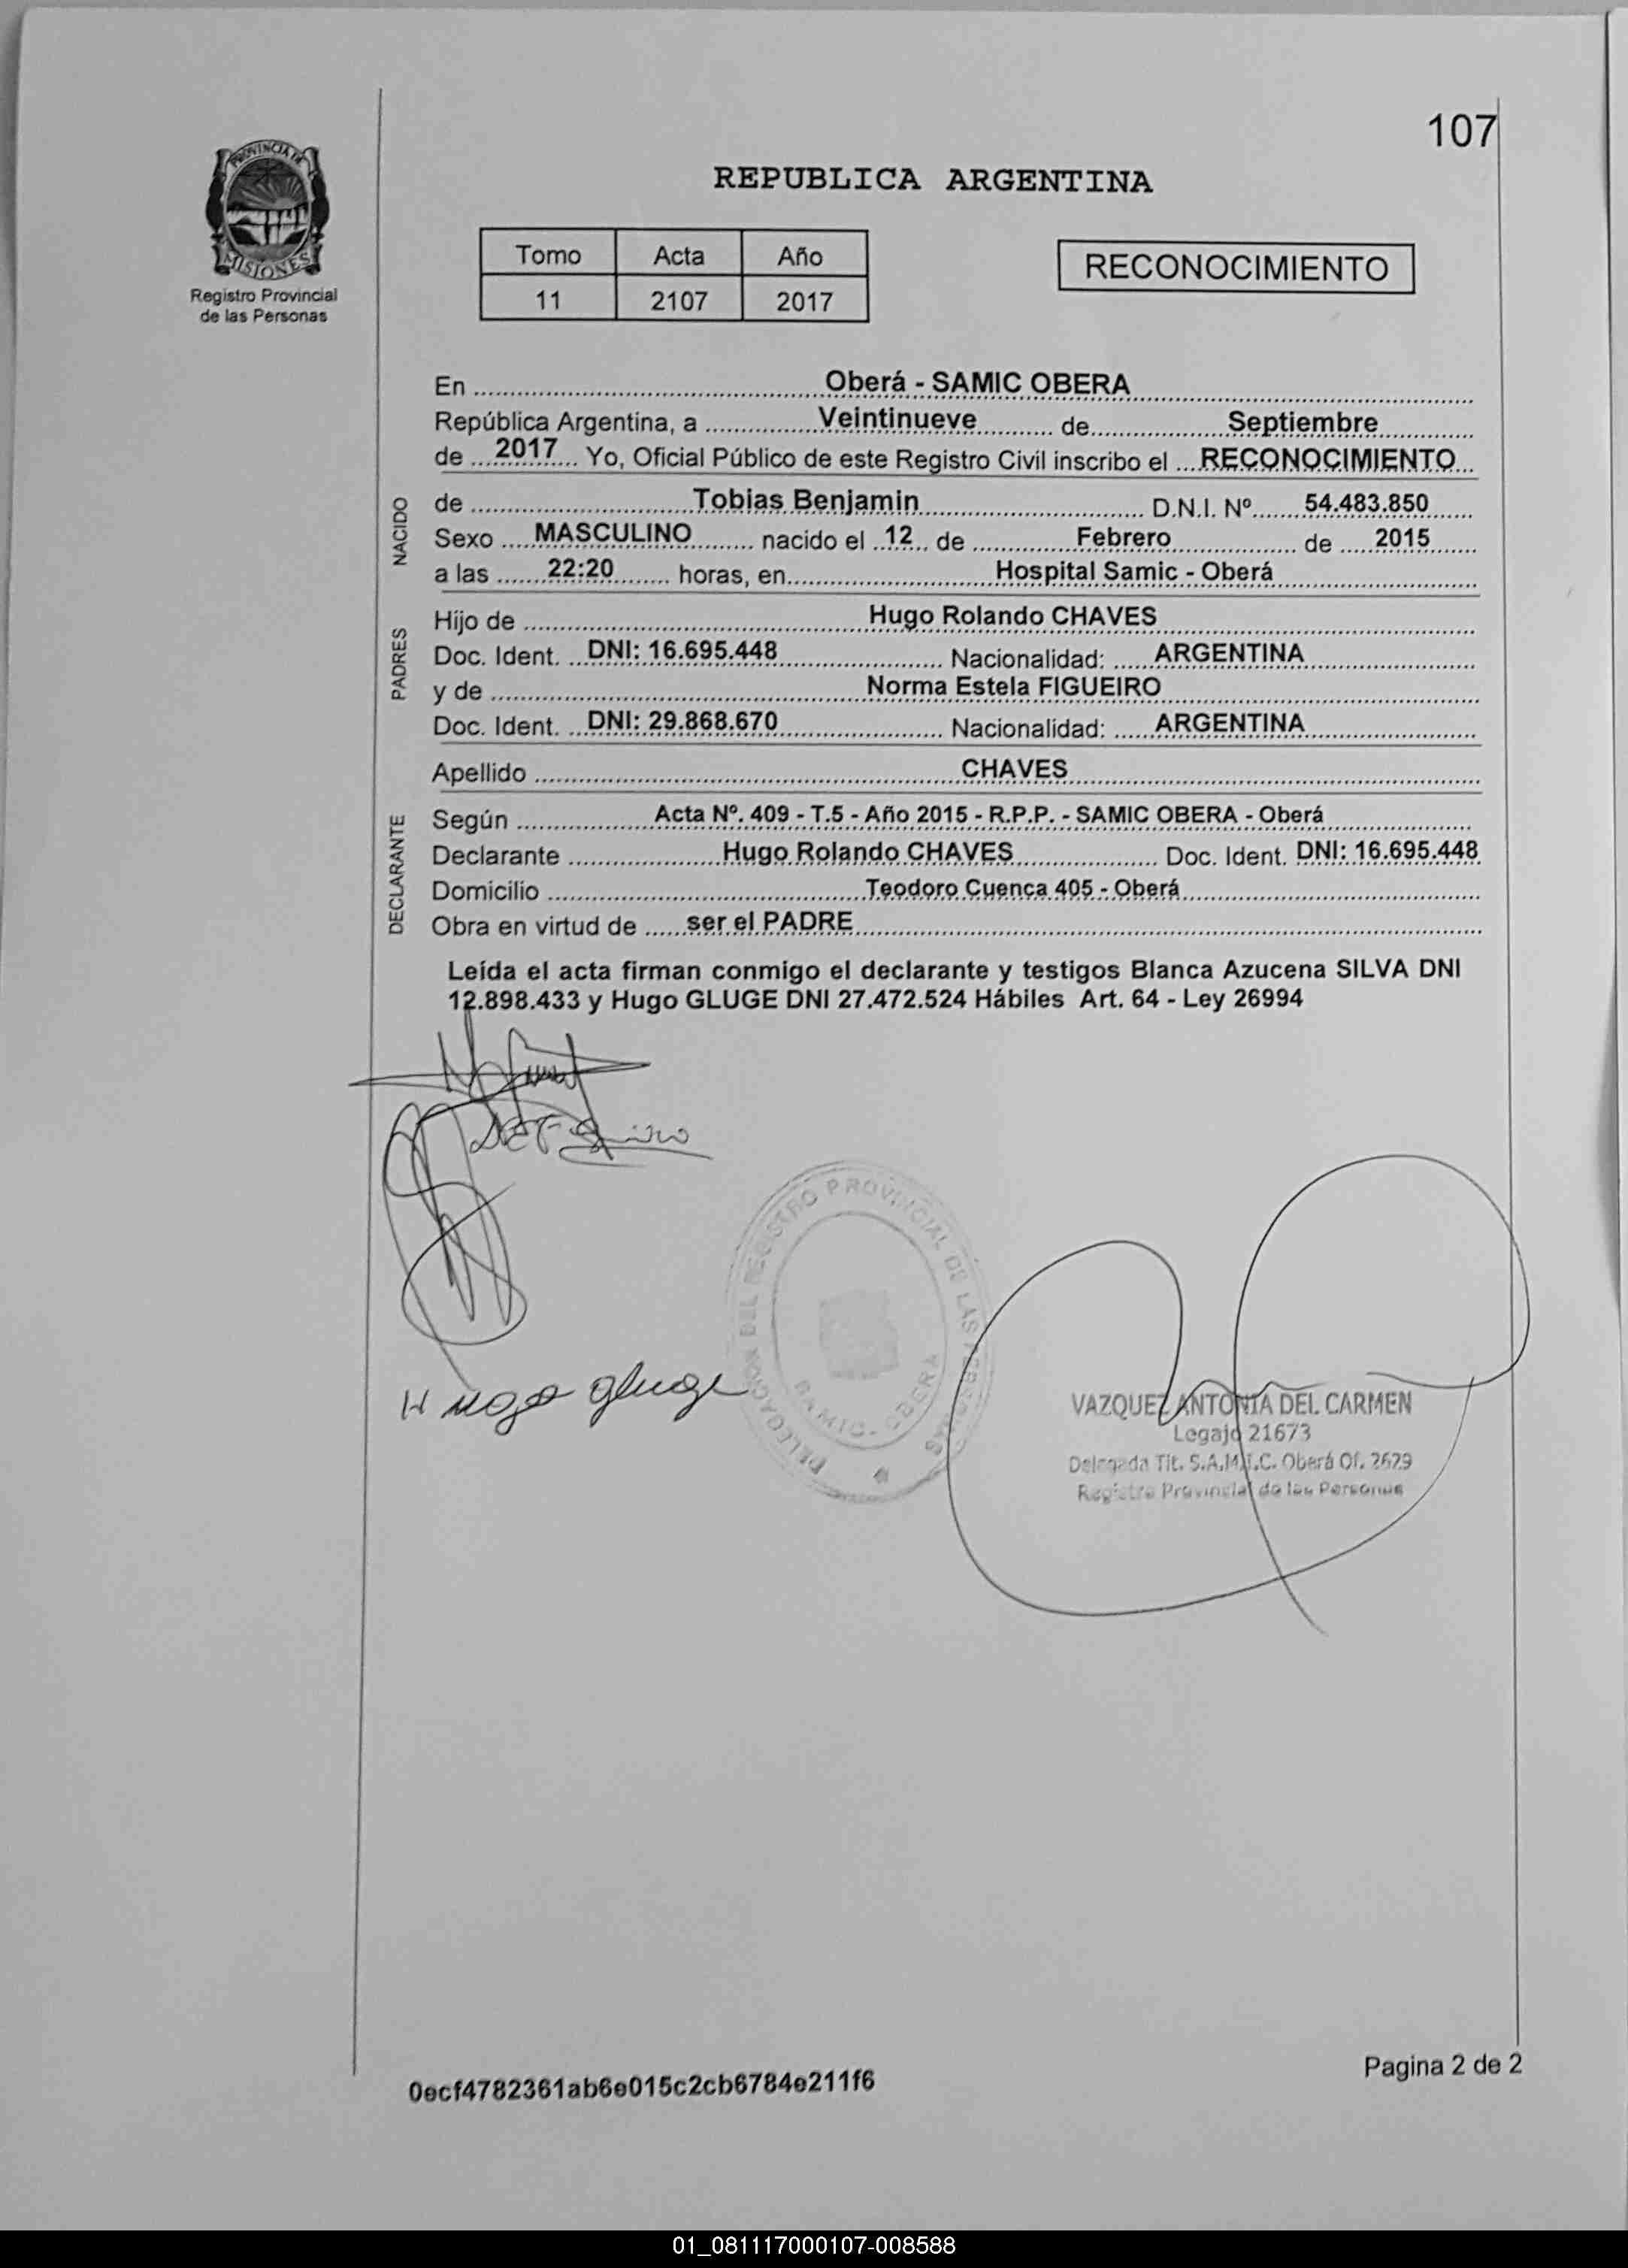 107
PROVINCIA DE
MISIONES
Registro Provincial
de las Personas
REPUBLICA ARGENTINA
Tomo Acta Año
11 2107 2017
RECONOCIMIENTO
En Oberá - SAMIC OBERA
República Argentina, a Veintinueve de Septiembre
de 2017 Yo, Oficial Público de este Registro Civil inscribo el RECONOCIMIENTO
NACIDO
de Tobias Benjamin D.N.I. Nº 54.483.850
Sexo MASCULINO nacido el 12 de Febrero de 2015
a las 22:20 horas, en Hospital Samic - Oberá
PADRES
Hijo de Hugo Rolando CHAVES
Doc. Ident. DNI: 16.695.448 Nacionalidad: ARGENTINA
y de Norma Estela FIGUEIRO
Doc. Ident. DNI: 29.868.670 Nacionalidad: ARGENTINA
Apellido CHAVES
DECLARANTE
Según Acta Nº. 409 - T.5 - Año 2015 - R.P.P. - SAMIC OBERA - Oberá
Declarante Hugo Rolando CHAVES Doc. Ident. DNI: 16.695.448
Domicilio Teodoro Cuenca 405 - Oberá
Obra en virtud de ser el PADRE
Leída el acta firman conmigo el declarante y testigos Blanca Azucena SILVA DNI
12.898.433 y Hugo GLUGE DNI 27.472.524 Hábiles Art. 64 - Ley 26994
Hugo gluge
DELEGACION DEL REGISTRO PROVINCIAL DE LAS PERSONAS
SAMIC - OBERA
VAZQUEZ ANTONIA DEL CARMEN
Legajo 21673
Delegada Tit. S.A.M.I.C. Oberá Of. 2629
Registro Provincial de las Personas
0ecf4782361ab6e015c2cb6784e211f6
Pagina 2 de 2
01_081117000107-008588